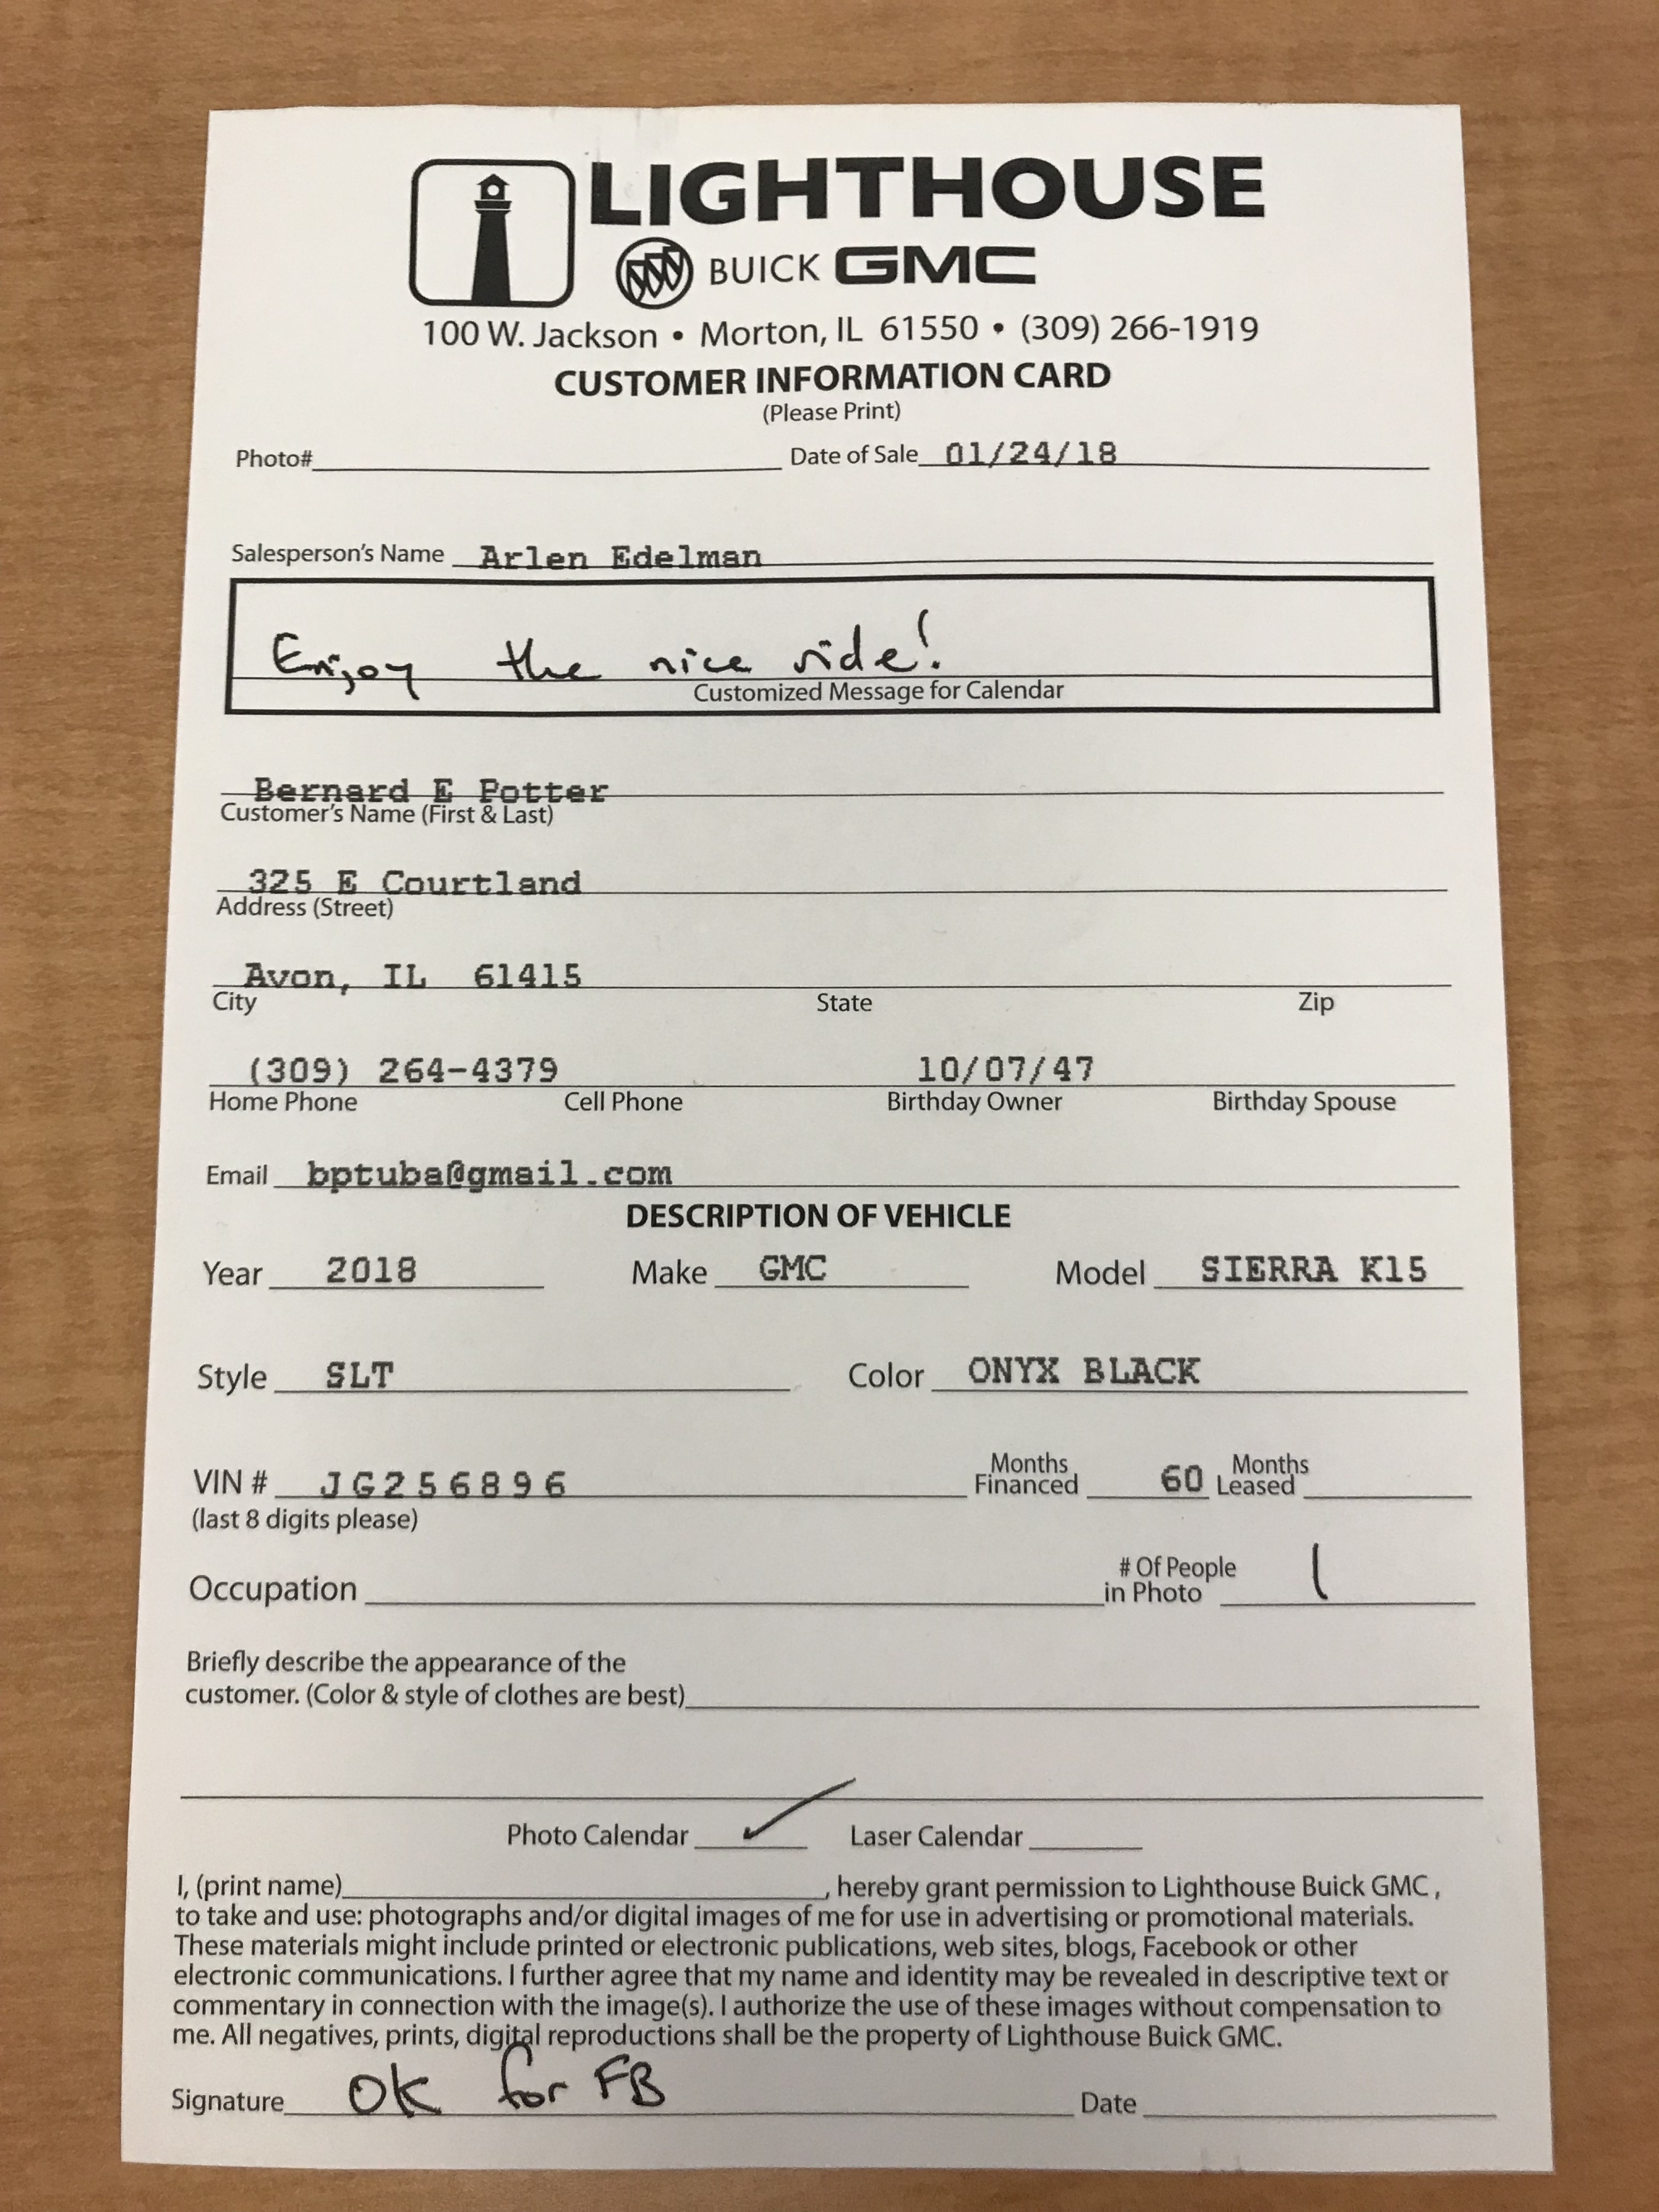 LIGHTHOUSE
BUICK GMC
100 W. Jackson • Morton, IL 61550 • (309) 266-1919
CUSTOMER INFORMATION CARD
(Please Print)
Photo# Date of Sale 01/24/18
Salesperson's Name Arlen Edelman
Enjoy the nice ride!
Customized Message for Calendar
Bernard E Potter
Customer's Name (First & Last)
325 E Courtland
Address (Street)
Avon, IL 61415
City State Zip
(309) 264-4379 10/07/47
Home Phone Cell Phone Birthday Owner Birthday Spouse
Email bptuba@gmail.com
DESCRIPTION OF VEHICLE
Year 2018 Make GMC Model SIERRA K15
Style SLT Color ONYX BLACK
VIN # JG256896 Months Financed 60 Months Leased
(last 8 digits please)
Occupation # Of People in Photo 1
Briefly describe the appearance of the
customer. (Color & style of clothes are best)
Photo Calendar ✓ Laser Calendar
I, (print name) , hereby grant permission to Lighthouse Buick GMC ,
to take and use: photographs and/or digital images of me for use in advertising or promotional materials.
These materials might include printed or electronic publications, web sites, blogs, Facebook or other
electronic communications. I further agree that my name and identity may be revealed in descriptive text or
commentary in connection with the image(s). I authorize the use of these images without compensation to
me. All negatives, prints, digital reproductions shall be the property of Lighthouse Buick GMC.
Signature OK for FB Date